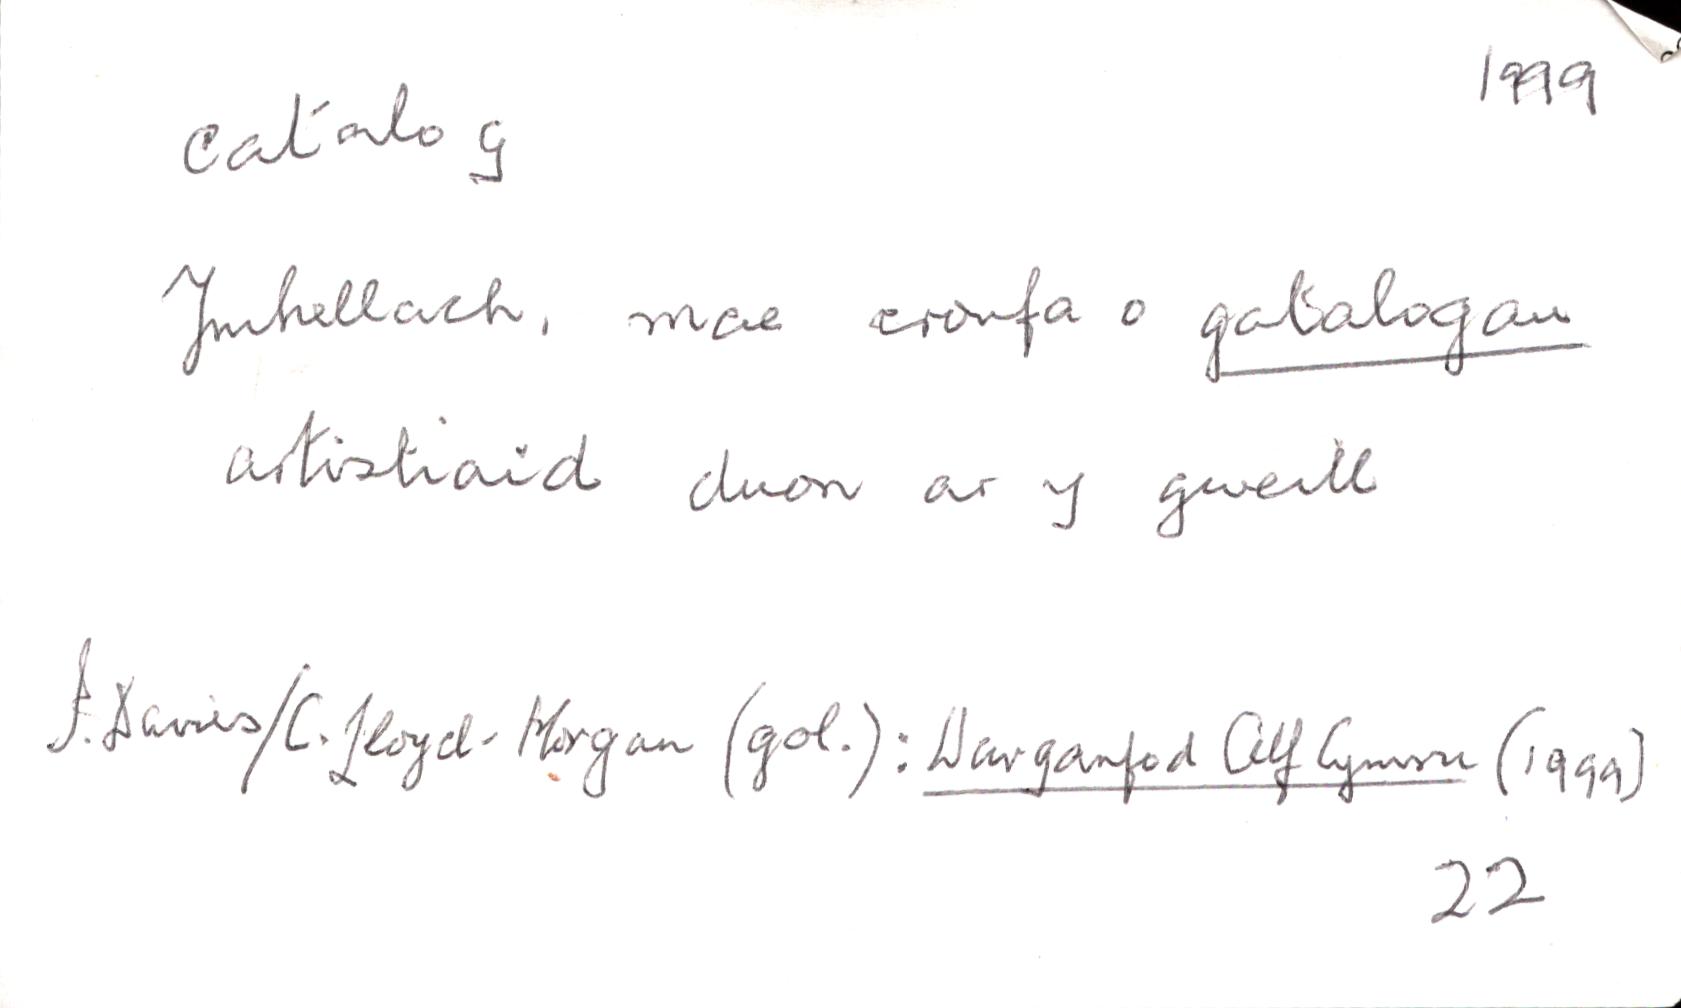 1999
catalog
Ymhellach, mae cronfa o gatalogau
artistiaid duon ar y gweill
I. Davies/C. Lloyd-Morgan (gol.): Darganfod Celf Cymru (1999)
22